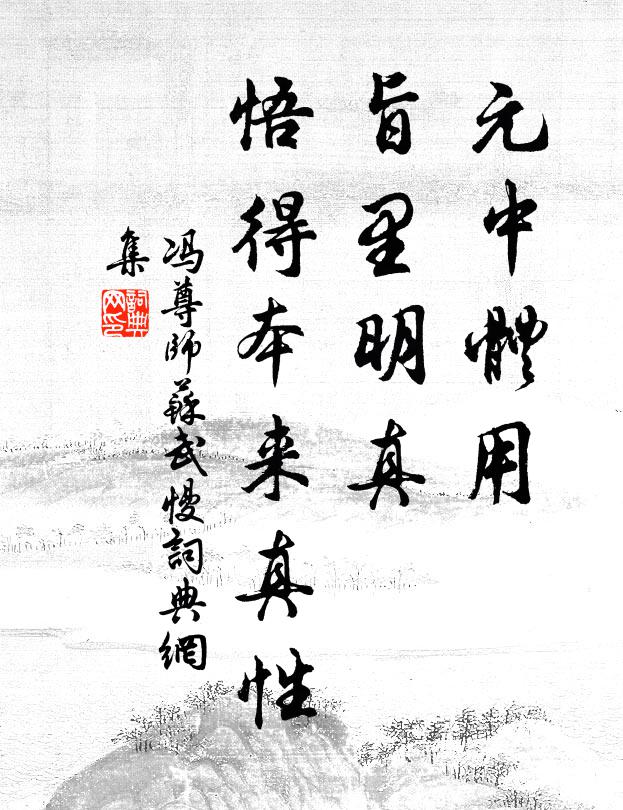 元中體用
旨里明真
悟得本来真性
冯尊師蘇武慢詞典網
集
詞典網印